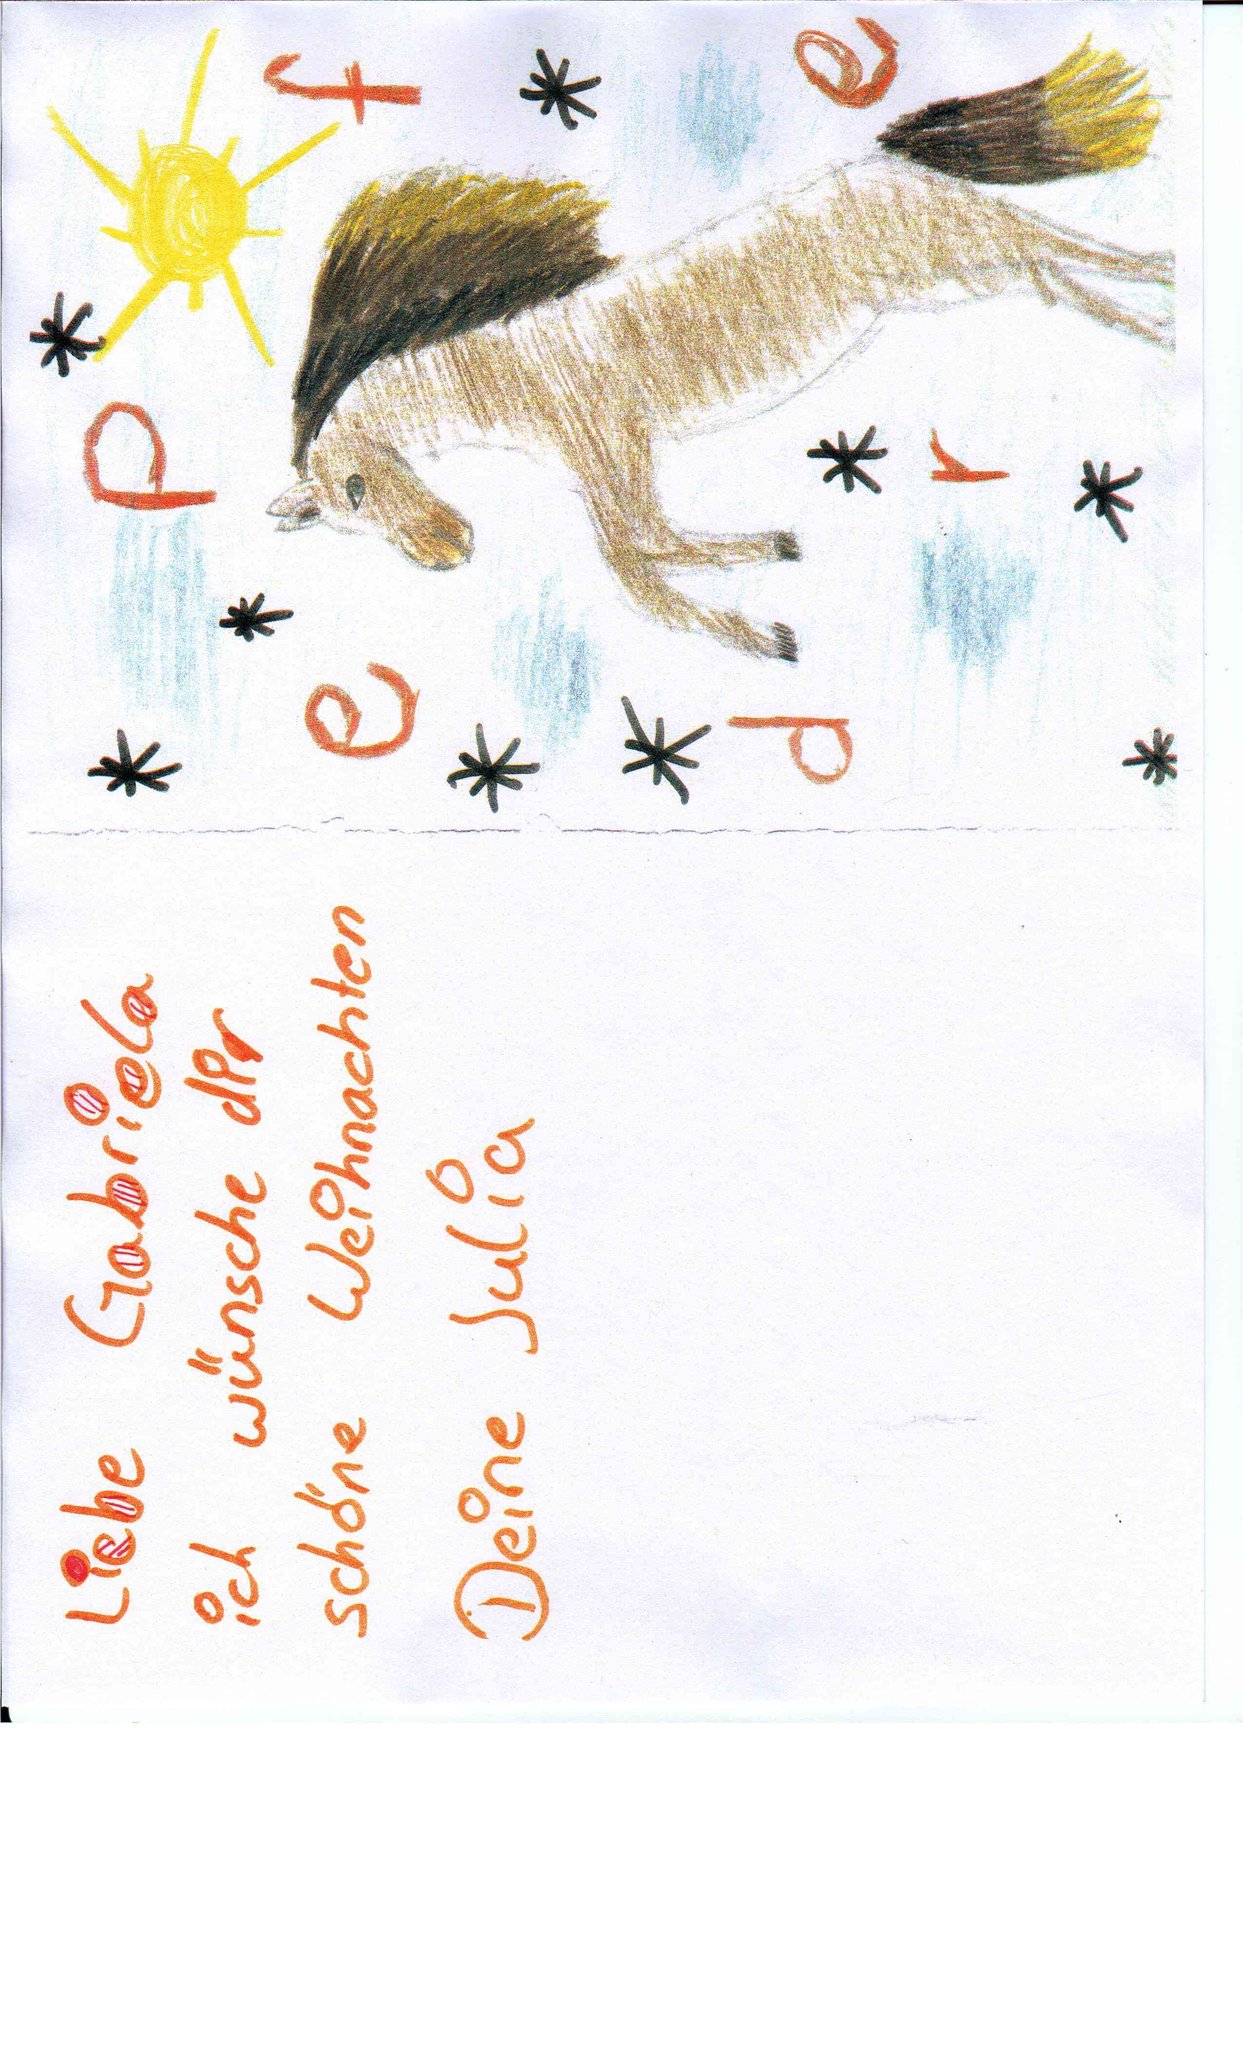 Liebe Gabriela
ich wünsche dir
schöne Weihnachten
Deine Julia
Pferde